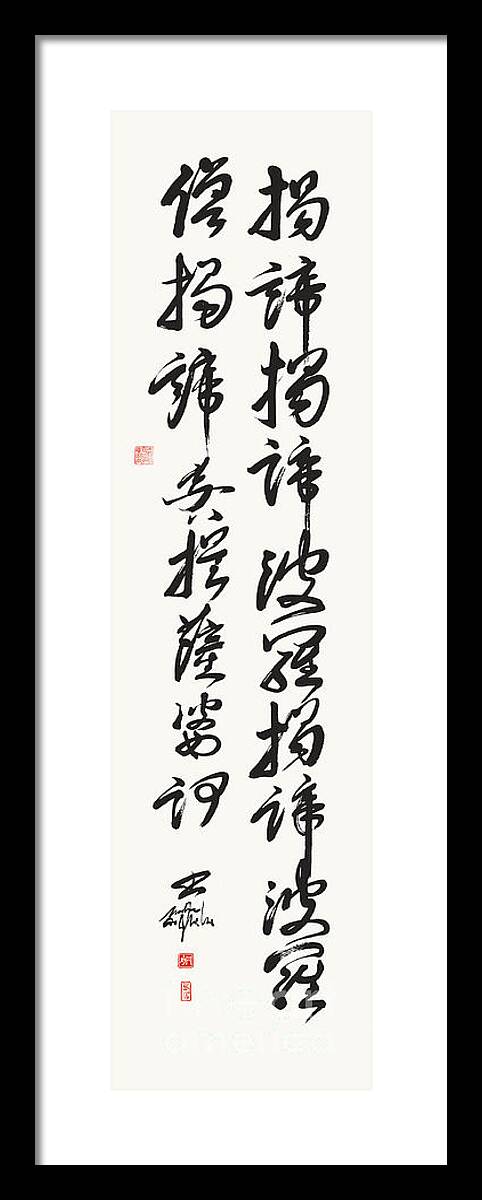 揭諦揭諦波羅揭諦波羅
僧揭諦菩提薩婆訶
america